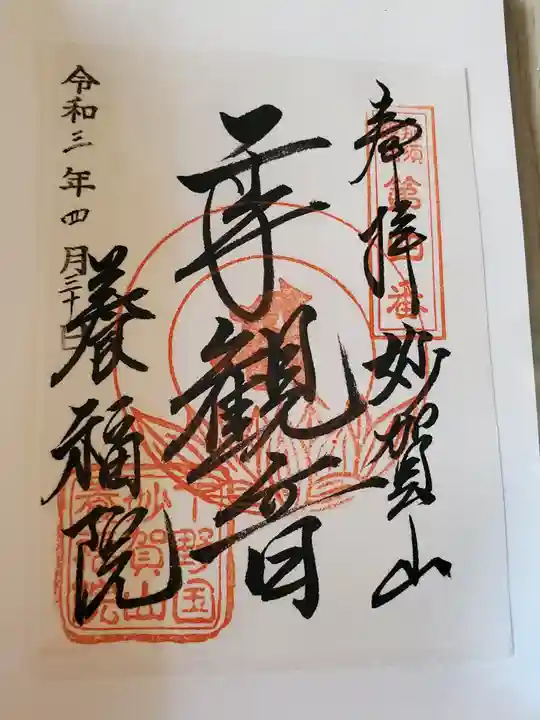 奉拝
妙賀山
千手観音
養福院
令和三年四月三十日
那須
第
番
下野国
妙賀山
養福院